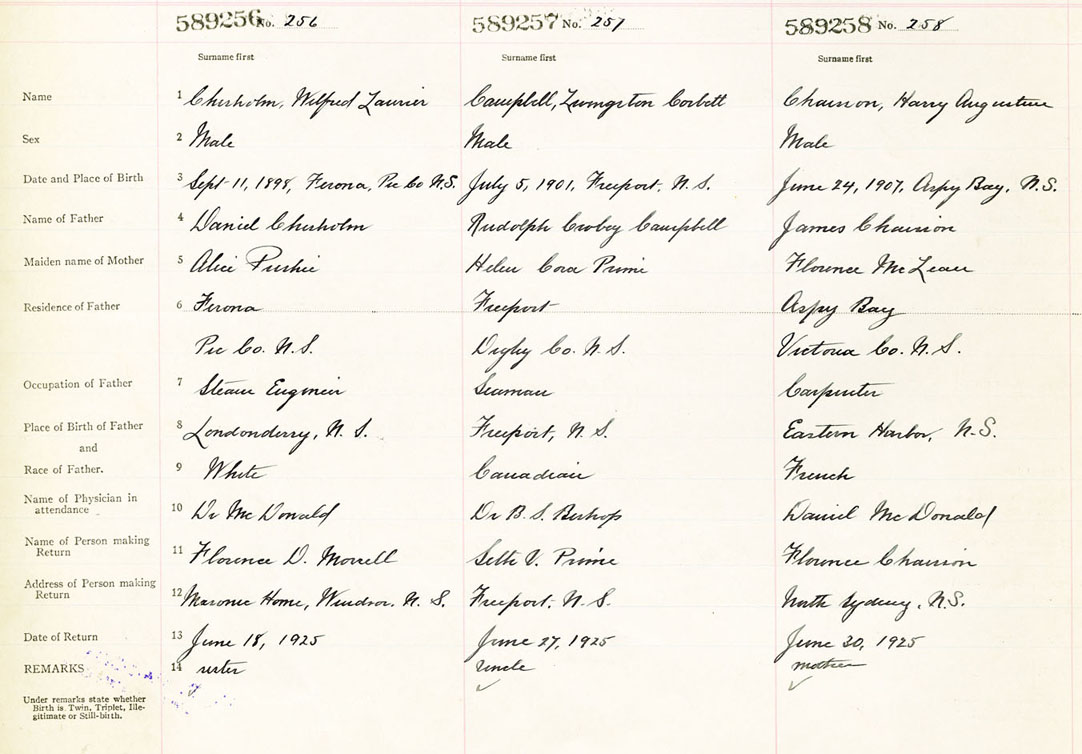 589256 No. 256 589257 No. 257 589258 No. 258
Surname first Surname first Surname first
Name 1 Chisholm, Wilfred Laurier Campbell, Livingston Corbett Chaisson, Harry Augustine
Sex 2 Male Male Male
Date and Place of Birth 3 Sept 11, 1898, Ferona, Pic Co N.S. July 5, 1901, Freeport, N.S. June 24, 1907, Aspy Bay, N.S.
Name of Father 4 Daniel Chisholm Rudolph Crobey Campbell James Chaisson
Maiden name of Mother 5 Alice Helen Cora Prime Florence McLean
Residence of Father 6 Ferona Freeport Aspy Bay
Pic Co. N.S. Digby Co. N.S. Victoria Co. N.S.
Occupation of Father 7 Steam Engineer Seaman Carpenter
Place of Birth of Father 8 Londonderry, N.S. Freeport, N.S. Eastern Harbor, N.S.
and
Race of Father. 9 White Canadian French
Name of Physician in
attendance 10 Dr McDonald Dr B.S. Bishop Daniel McDonald
Name of Person making
Return 11 Florence D. Morrell Seth V. Prime Florence Chaisson
Address of Person making
Return 12 Masonic Home, Windsor, N.S. Freeport, N.S. North Sydney, N.S.
Date of Return 13 June 18, 1925 June 27, 1925 June 30, 1925
REMARKS 14 sister uncle mother
Under remarks state whether
Birth is Twin, Triplet, Ille-
gitimate or Still-birth.